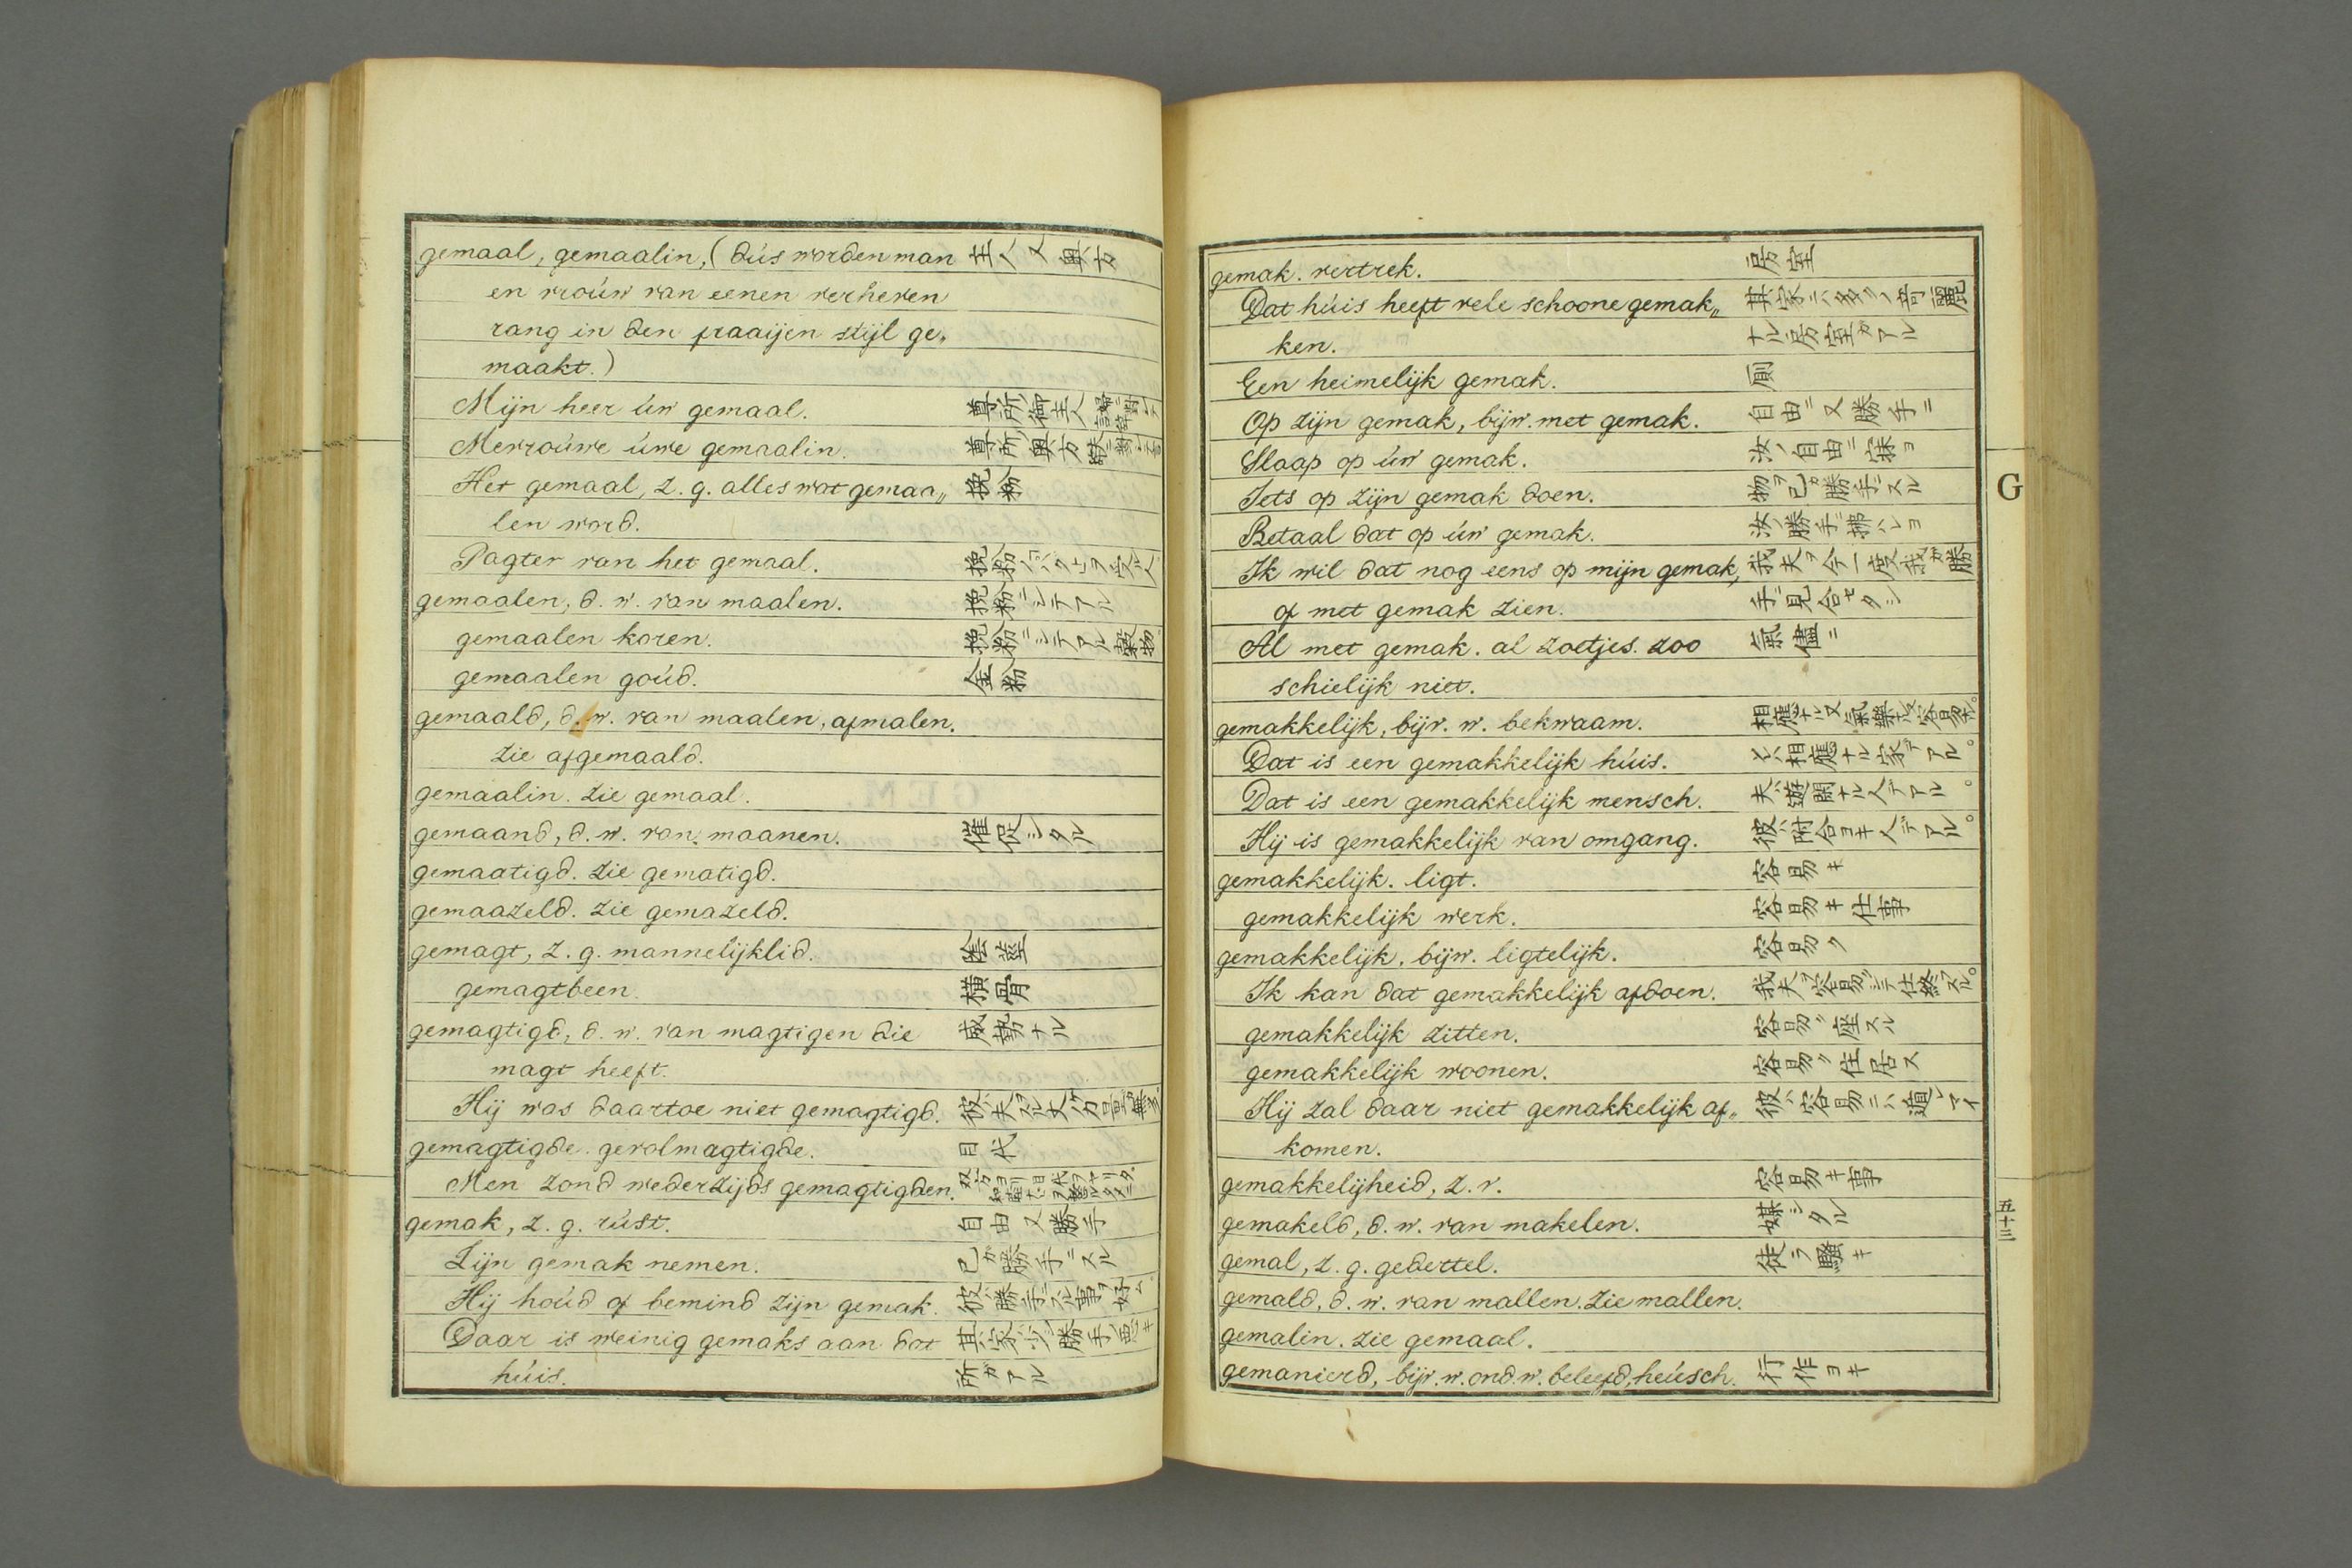 gemaal, gemaalin, (dús worden man 主人又奥方
en vroúw van eenen verheven
rang in den fraaijen stijl ge„
maakt.)
Mijn heer úw gemaal. 尊所ノ御主人
Mevroúwe úwe gemaalin. 尊所ノ奥方
Het gemaal, z. g. alles wat gemaa„ 挽粉
len word.
Pagter van het gemaal.
gemaalen, d. w. van maalen. 挽粉ニシテアル
gemaalen koren. 挽粉ニシテアル穀物
gemaalen goúd. 金粉
gemaald, d. w. van maalen, afmalen.
zie afgemaald.
gemaalin. zie gemaal.
gemaand, d. w. van maanen. 催促シタル
gemaatigd. zie gematigd.
gemaazeld. zie gemazeld.
gemagt, z. g. mannelijklid. 陰莖
gemagtbeen. 横骨
gemagtigd, d. w. van magtigen die 威勢ナル
magt heeft.
Hij was daartoe niet gemagtigd.
gemagtigde. gevolmagtigde. 目代
Men zond wederzijds gemagtigden.
gemak, z. g. rúst. 自由又勝手
Zijn gemak nemen. 己ガ勝手ニスル
Hij hoúd of bemind zijn gemak. 彼ハ勝手ニスル事ヲ好ム
Daar is weinig gemaks aan dat 其家少シ勝手ノ悪キ
húis. 所ガアル
gemak. vertrek. 房室
Dat húis heeft vele schoone gemak„ 其家ニハ多クノ奇麗
ken. ナル房室ガアル
Een heimelijk gemak. 厠
Op zijn gemak, bijw. met gemak. 自由ニ又勝手ニ
Slaap op úw gemak. 汝ノ自由ニ寐ヨ
Iets op zijn gemak doen. 物ヲ己ガ勝手ニスル
Betaal dat op úw gemak. 汝ノ勝手ニ拂ハレヨ
Ik wil dat nog eens op mijn gemak, 我夫ヲ今一度我ガ勝
of met gemak zien. 手ニ見合セタシ
Al met gemak. al zoetjes. zoo 氣儘ニ
schielijk niet.
gemakkelijk, bijv. w. bekwaam. 相應ナル又氣樂ナル又容易ナル。
Dat is een gemakkelijk húis. 夫ハ相應ナル家デアル。
Dat is een gemakkelijk mensch. 夫ハ遊閑ナル人デアル。
Hij is gemakkelijk van omgang. 彼ハ附合ヨキ人デアル。
gemakkelijk. ligt. 容易キ
gemakkelijk werk. 容易キ仕事
gemakkelijk. bijw. ligtelijk. 容易ク
Ik kan dat gemakkelijk afdoen.
gemakkelijk zitten. 容易ク座スル
gemakkelijk woonen. 容易ク住居ス
Hij zal daar niet gemakkelijk af„ 彼ハ容易ニハ遁レマイ
komen.
gemakkelijheid, z. v. 容易キ事
gemakeld, d. w. van makelen. 媒シタル
gemal, z. g. gedertel. 徒ラ騒キ
gemald, d. w. van mallen. zie mallen.
gemalin. zie gemaal.
gemanierd, bijv. w. ond. w. beleefd, heúsch. 行作ヨキ
G
五十三